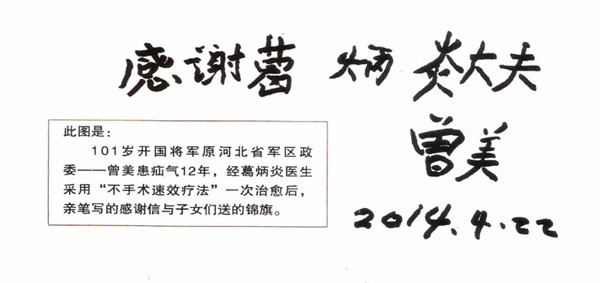 感谢葛 炳 炎大夫
曾美
2014.4.22
此图是:
101岁开国将军原河北省军区政
委——曾美患疝气12年,经葛炳炎医生
采用“不手术速效疗法”一次治愈后,
亲笔写的感谢信与子女们送的锦旗。